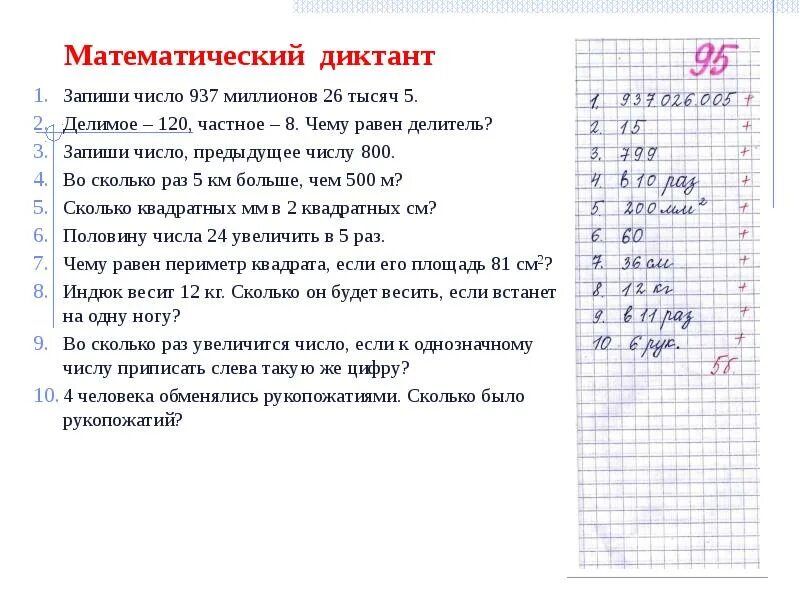 Математический диктант
1. Запиши число 937 миллионов 26 тысяч 5.
2. Делимое – 120, частное – 8. Чему равен делитель?
3. Запиши число, предыдущее числу 800.
4. Во сколько раз 5 км больше, чем 500 м?
5. Сколько квадратных мм в 2 квадратных см?
6. Половину числа 24 увеличить в 5 раз.
7. Чему равен периметр квадрата, если его площадь 81 см²?
8. Индюк весит 12 кг. Сколько он будет весить, если встанет
на одну ногу?
9. Во сколько раз увеличится число, если к однозначному
числу приписать слева такую же цифру?
10. 4 человека обменялись рукопожатиями. Сколько было
рукопожатий?
95
1. 937.026.005 +
2. 15 +
3. 799 +
4. в 10 раз +
5. 200 мм² +
6. 60 +
7. 36 см +
8. 12 кг +
9. в 11 раз +
10 6 рук. +
5б.